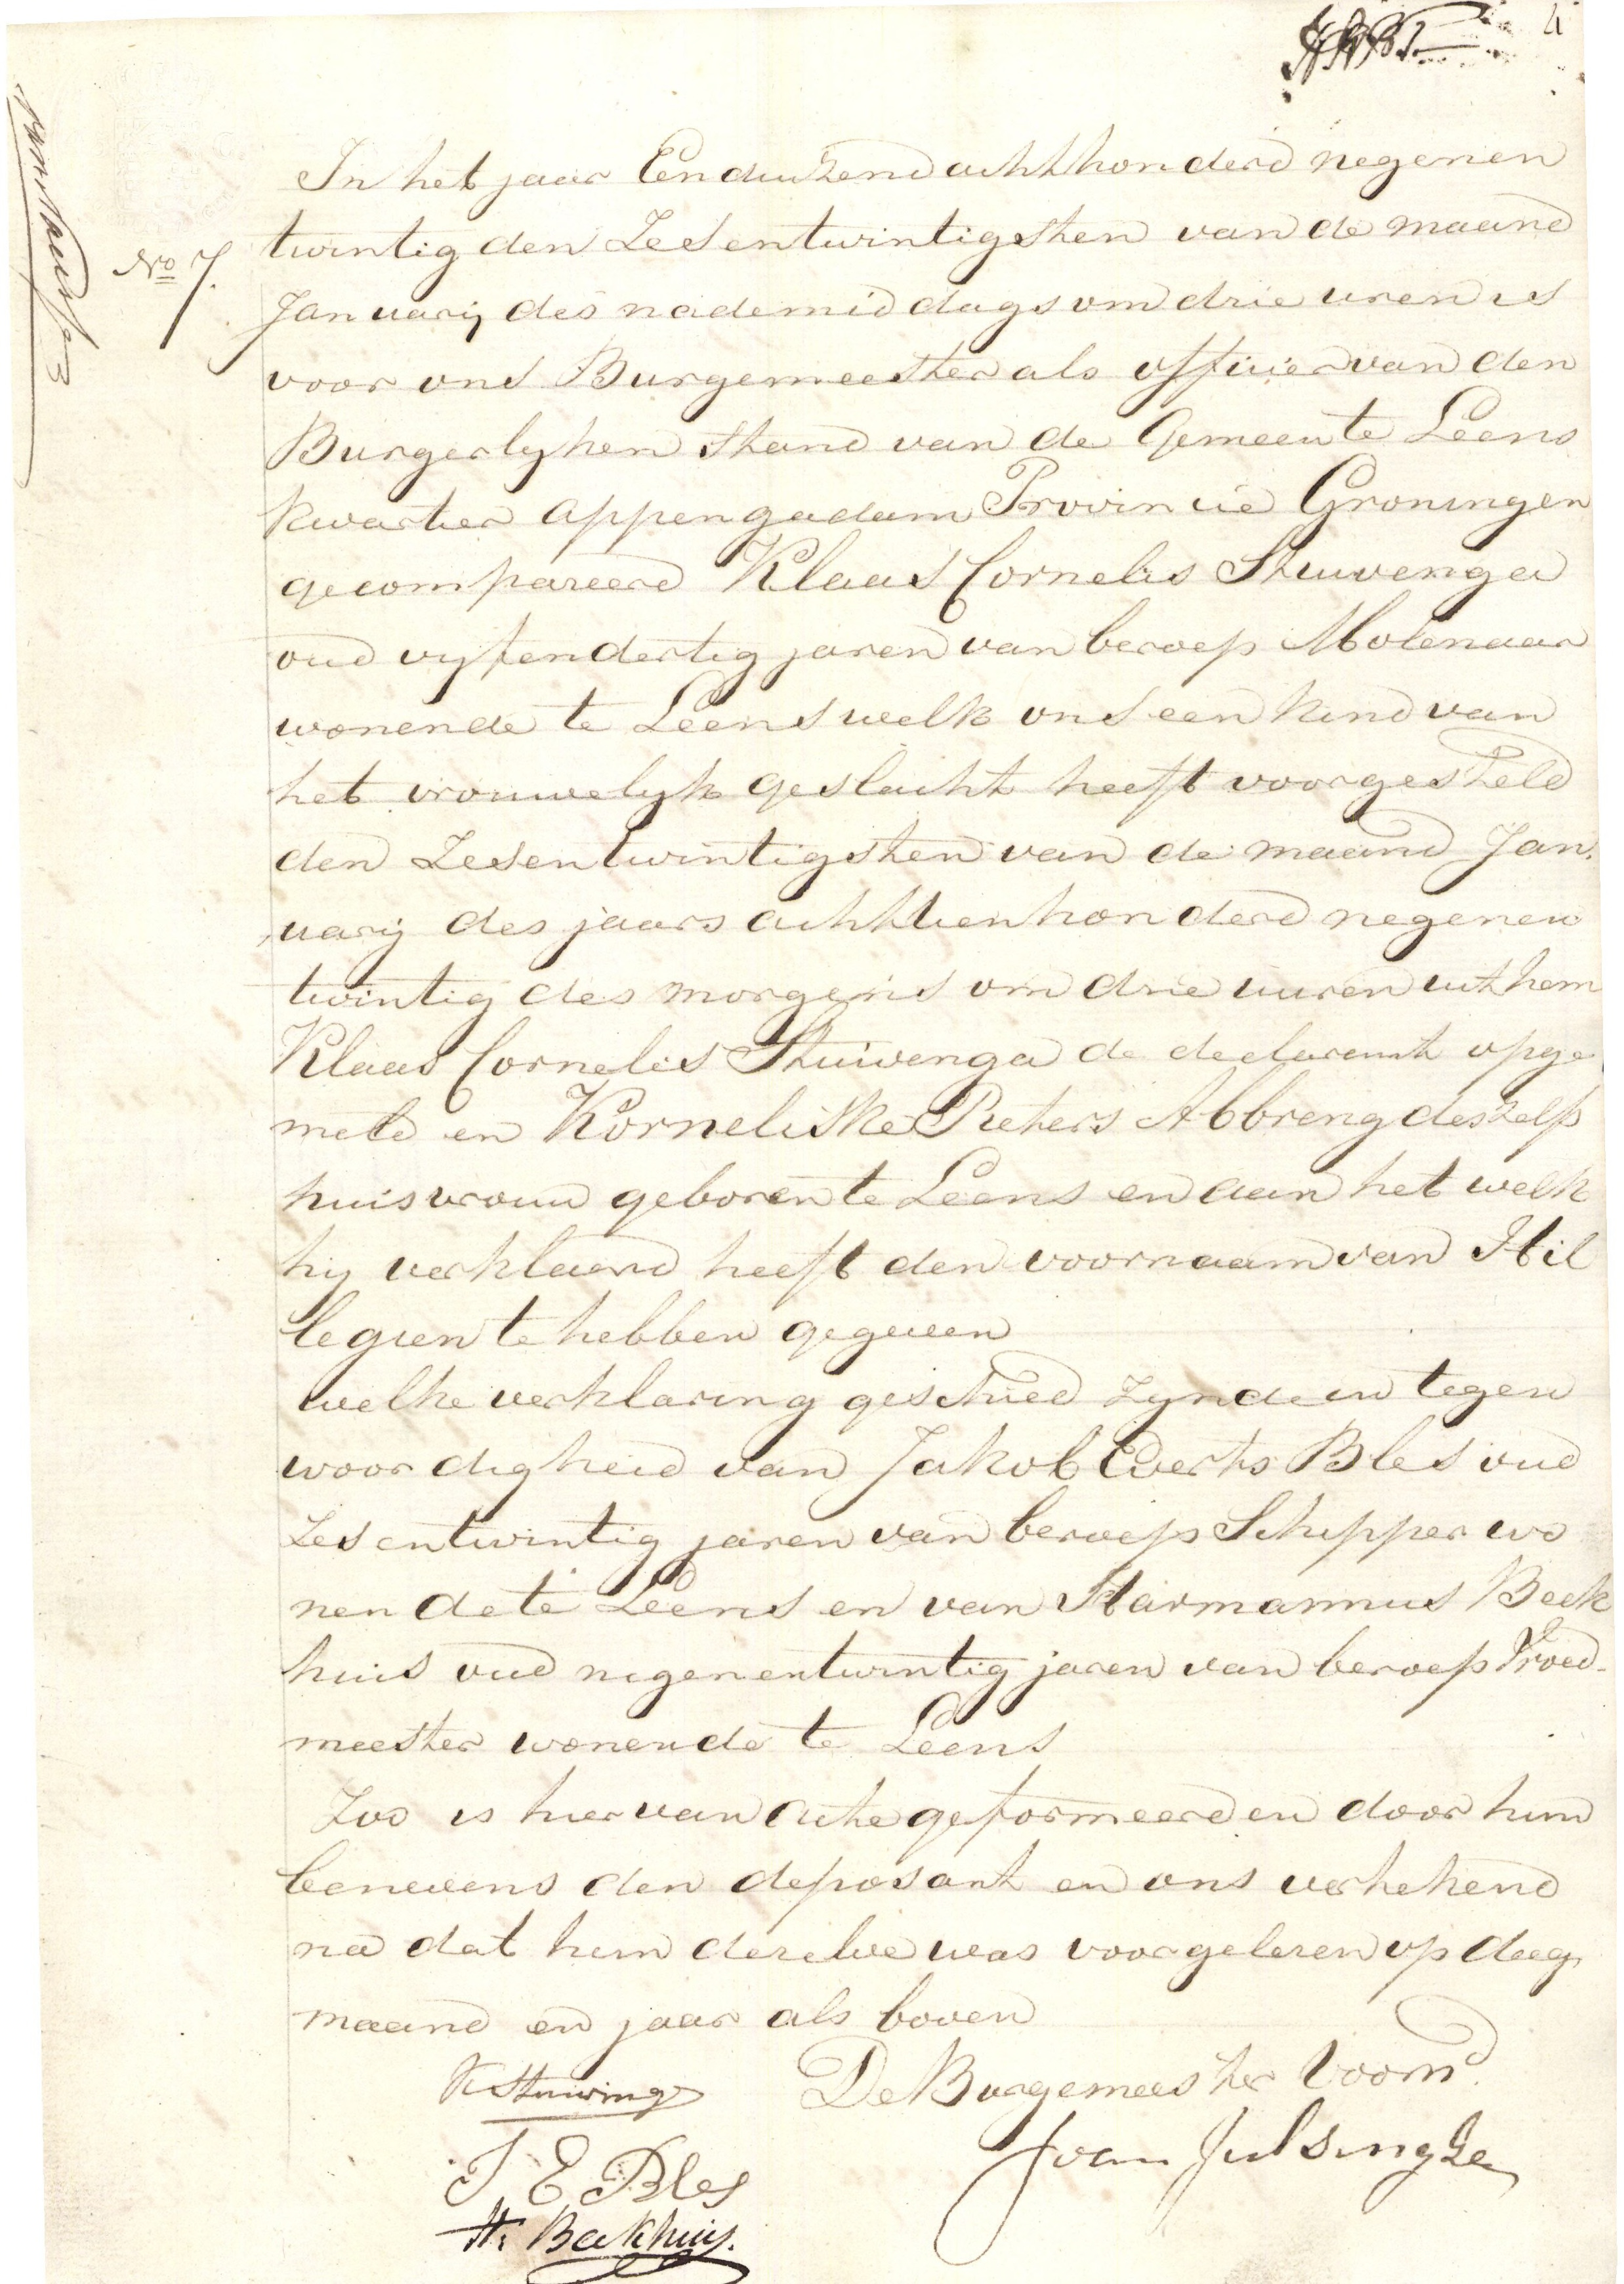 4
No 7.
In het jaar Eenduizend achthonderd negenen
twintig den Zesentwintigsten van de maand
Januarij des nademiddags om drie uren is
voor ons Burgemeester als officier van den
Burgerlyken Stand van de Gemeente Leens
kwartier Appengadam Provincie Groningen
gecompareerd Klaas Cornelis Stuivenga
oud vyfendertig jaren van beroep Molenaar
wonende te Leens welk ons een kind van
het vrouwelyk geslacht heeft voorgesteld
den Zesentwintigsten van de maand Jan.
uarij des jaars achttienhonderd negenen
twintig des morgens om drie uuren uit hem
Klaas Cornelis Stuivenga de declarant opge
meld en Korneliske Pieters Abbreng deszelfs
huisvrouw geboren te Leens en aan het welk
hij verklaard heeft den voornaam van Hil
legien te hebben gegeven
welke verklaring geschied zynde in tegen
woordigheid van Jakob Everts Bles oud
Zesentwintig jaren van beroep Schipper wo
nende te Leens en van Harmannus Beek
huis oud negenentwintig jaren van beroep Vroed-
meester wonende te Leens
Zoo is hiervan Acte geformeerd en door hun
benevens den deposant en ons getekend
na dat hun dezelve was voorgelezen op dag
maand en jaar als boven
K Stuivinga
De Burgemeester Voornd.
J E Bles
J van Julsingha
H. Beekhuis.